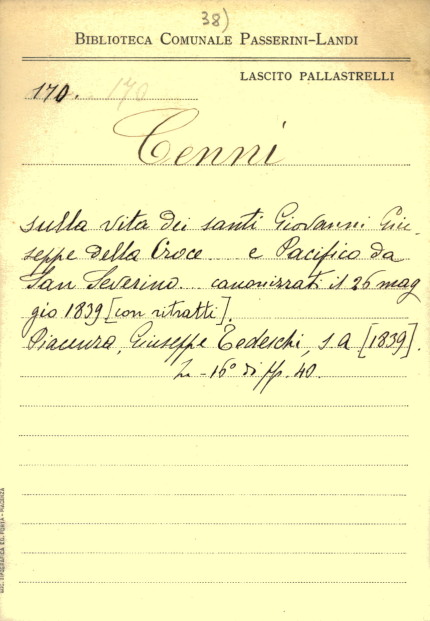 38)
BIBLIOTECA COMUNALE PASSERINI-LANDI
LASCITO PALLASTRELLI
170. 170
Cenni
sulla vita dei santi Giovanni Giu-
seppe della Croce e Pacifico da
San Severino canonizzati il 26 mag
gio 1839 [con ritratti].
Piacenza, Giuseppe Tedeschi, s a [1839].
in-16° di pp. 40.
SOC. TIPOGRAFICA ED. PORTA - PIACENZA